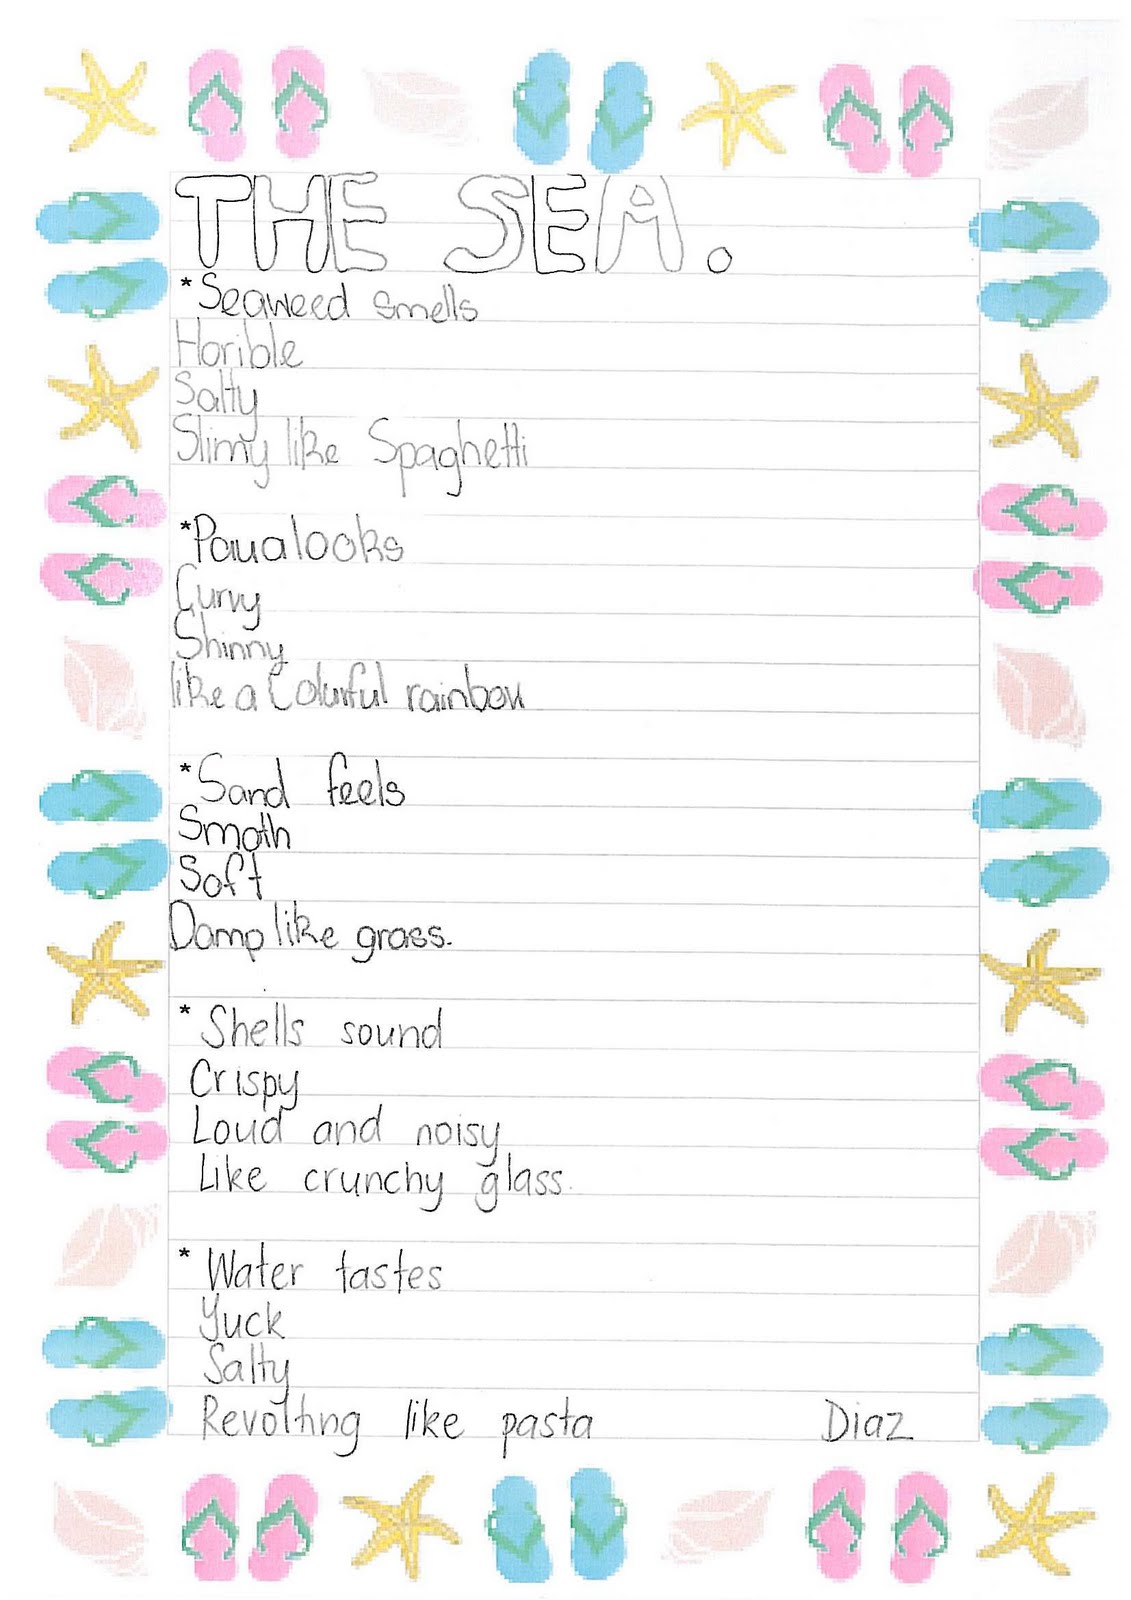 THE SEA.
*Seaweed smells
Horible
Salty
Slimy like Spaghetti
*Paua looks
Curvy
Shinny
like a Colourful rainbow
*Sand feels
Smoth
Soft
Damp like grass.
*Shells sound
Crispy
Loud and noisy
Like crunchy glass.
*Water tastes
Yuck
Salty
Revolting like pasta Diaz